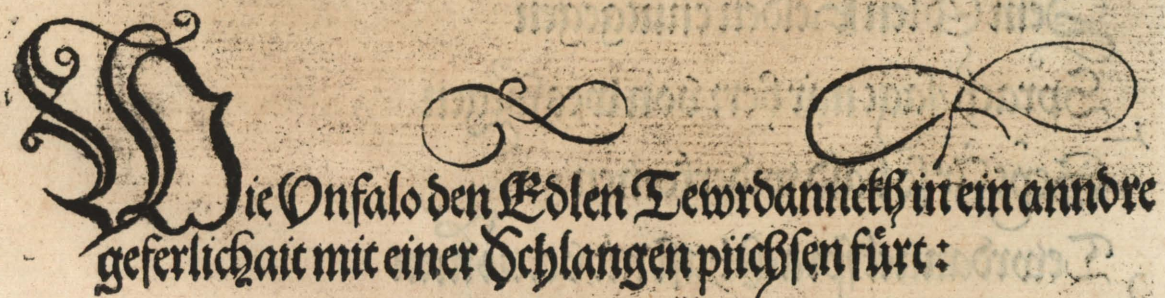 Wie Unfalo den Edlen Tewrdannckh in ein anndre
geferlichait mit einer Schlangen püchsen fürt: